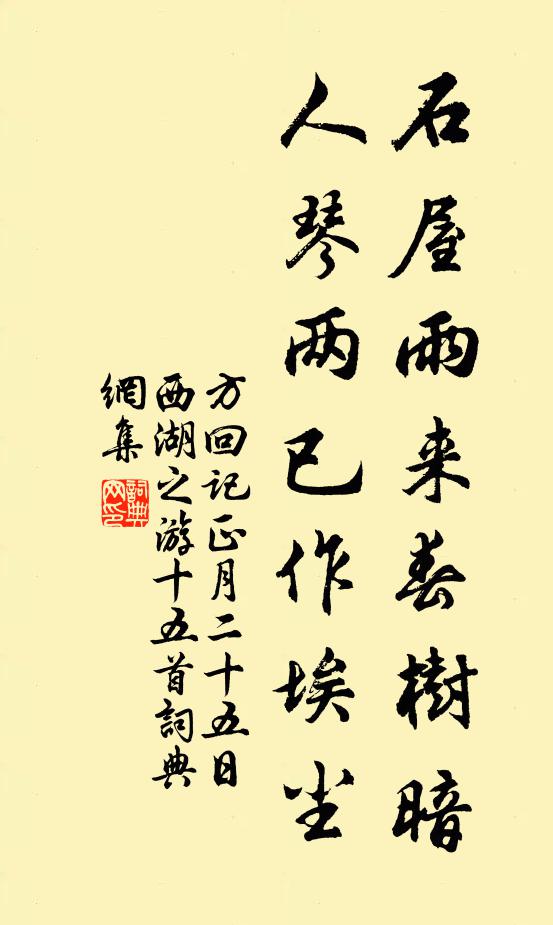 石屋雨来春樹暗
人琴两已作埃尘
方回记正月二十五日
西湖之游十五首詞典
網集
詞典
网印